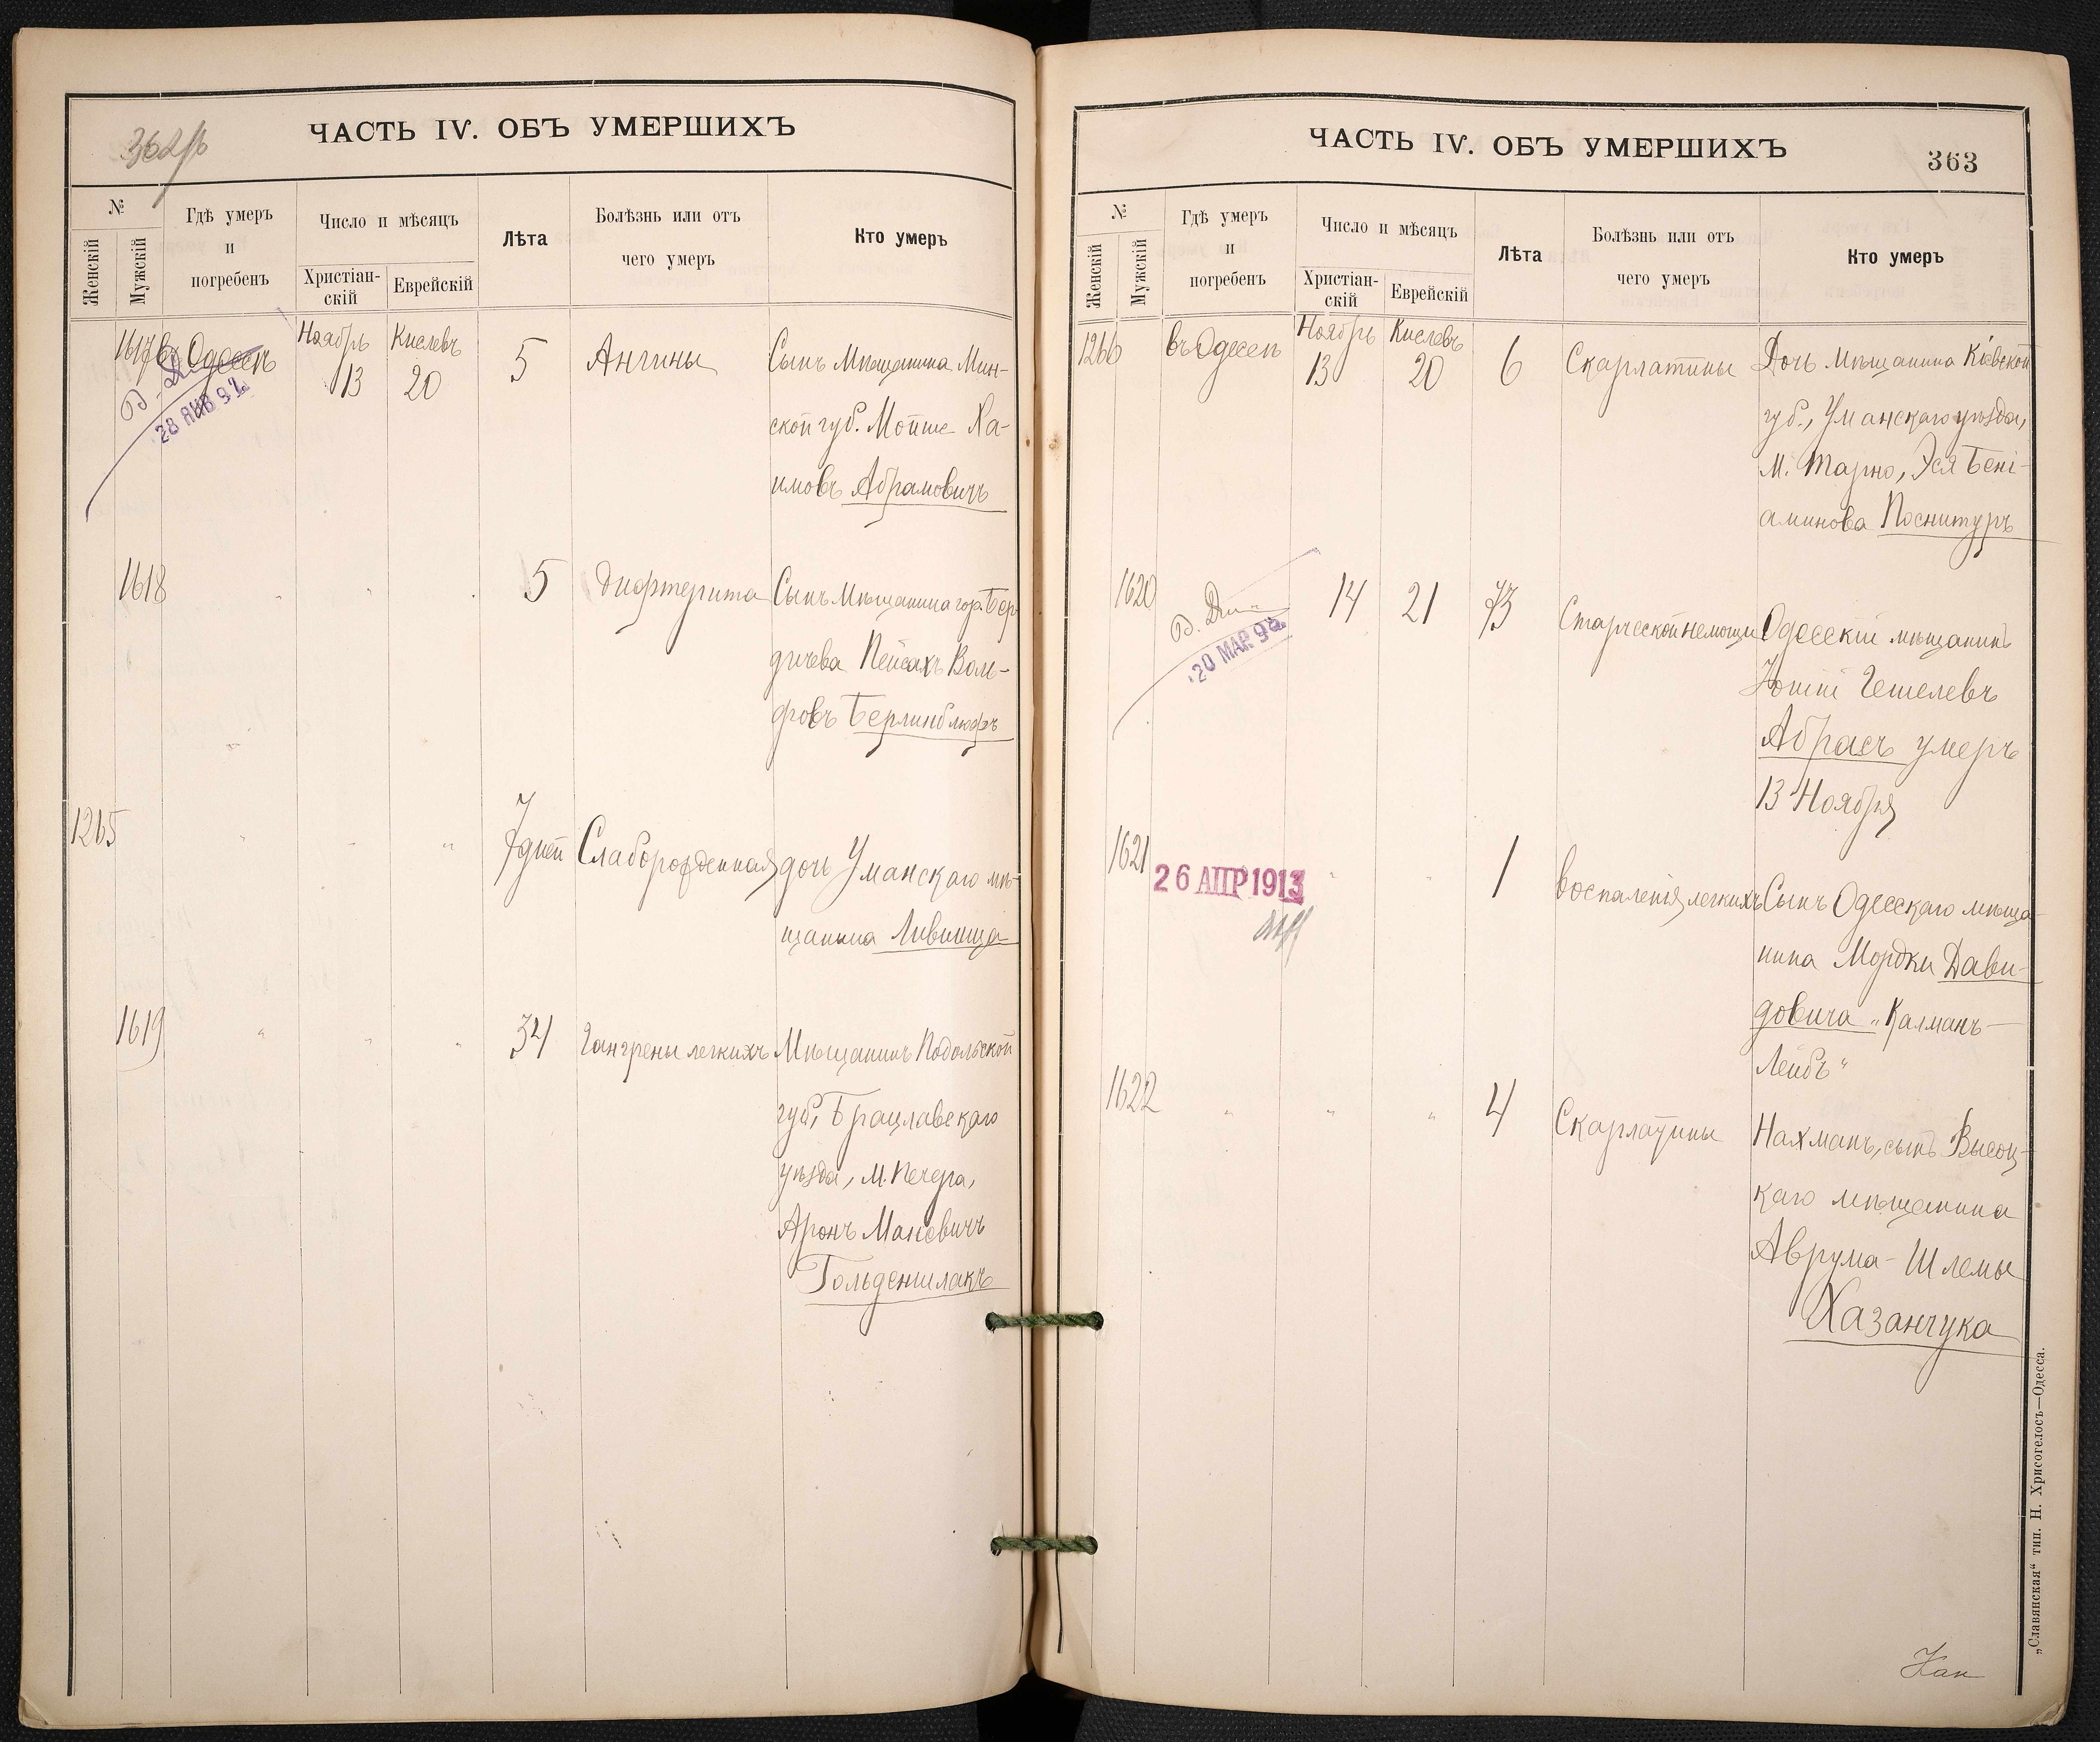 362 об
ЧАСТЬ IV. ОБЪ УМЕРШИХЪ
№
Женскій
Мужскій
Гдѣ умеръ
и
погребенъ
Число и мѣсяцъ
Христіан-
скій
Еврейскій
Лѣта
Болѣзнь или отъ
чего умеръ
Кто умеръ
1617
въ Одессѣ
Ноябрь
13
Кислевъ
20
5
Ангины
Сынъ Мѣщанина Мин-
ской губ. Мойше Ха-
имовъ Абрамовичъ
28 ЯНВ 92
1618
"
"
"
5
Дифтерита
Сынъ Мѣщанина гор. Бер-
дичева Пейсахъ Воль-
фовъ Берлинблюфъ
1265
"
"
"
7
7 дней
Слаборожденная
дочь Уманскаго мѣ-
щанина Лившица
1619
"
"
"
34
Гангрены легкихъ
Мѣщанинъ Подольской
губ, Брацлавскаго
уѣзда, м. Печера,
Аронъ Маневичъ
Гольденшлакъ
ЧАСТЬ IV. ОБЪ УМЕРШИХЪ
363
№
Женскій
Мужскій
Гдѣ умеръ
и
погребенъ
Число и мѣсяцъ
Христіан-
скій
Еврейскій
Лѣта
Болѣзнь или отъ
чего умеръ
Кто умеръ
1266
въ Одессѣ
Ноябрь
13
Кислевъ
20
6
Скарлатины
Дочь мѣщанина Кіевской
губ., Уманскаго уѣзда,
м. Тарно, Эся Бені-
аминова Поснитуръ
1620
20 МАР 98
14
21
73
Старческой немощи
Одесскій мѣщанинъ
Гешелевъ
Абрасъ умеръ
13 Ноября
1621
26 АПР 1913
"
"
1
Воспаленія легкихъ
Сынъ Одесскаго мѣща-
нина Мордки Дави-
довича "Калманъ-
Лейбъ"
1622
"
"
"
4
Скарлатины
Нахманъ, сынъ Высоц-
каго мѣщанина
Аврума-Шлемы
Хазанчука
„Славянская“ тип. Н. Хрисогелосъ—Одесса.